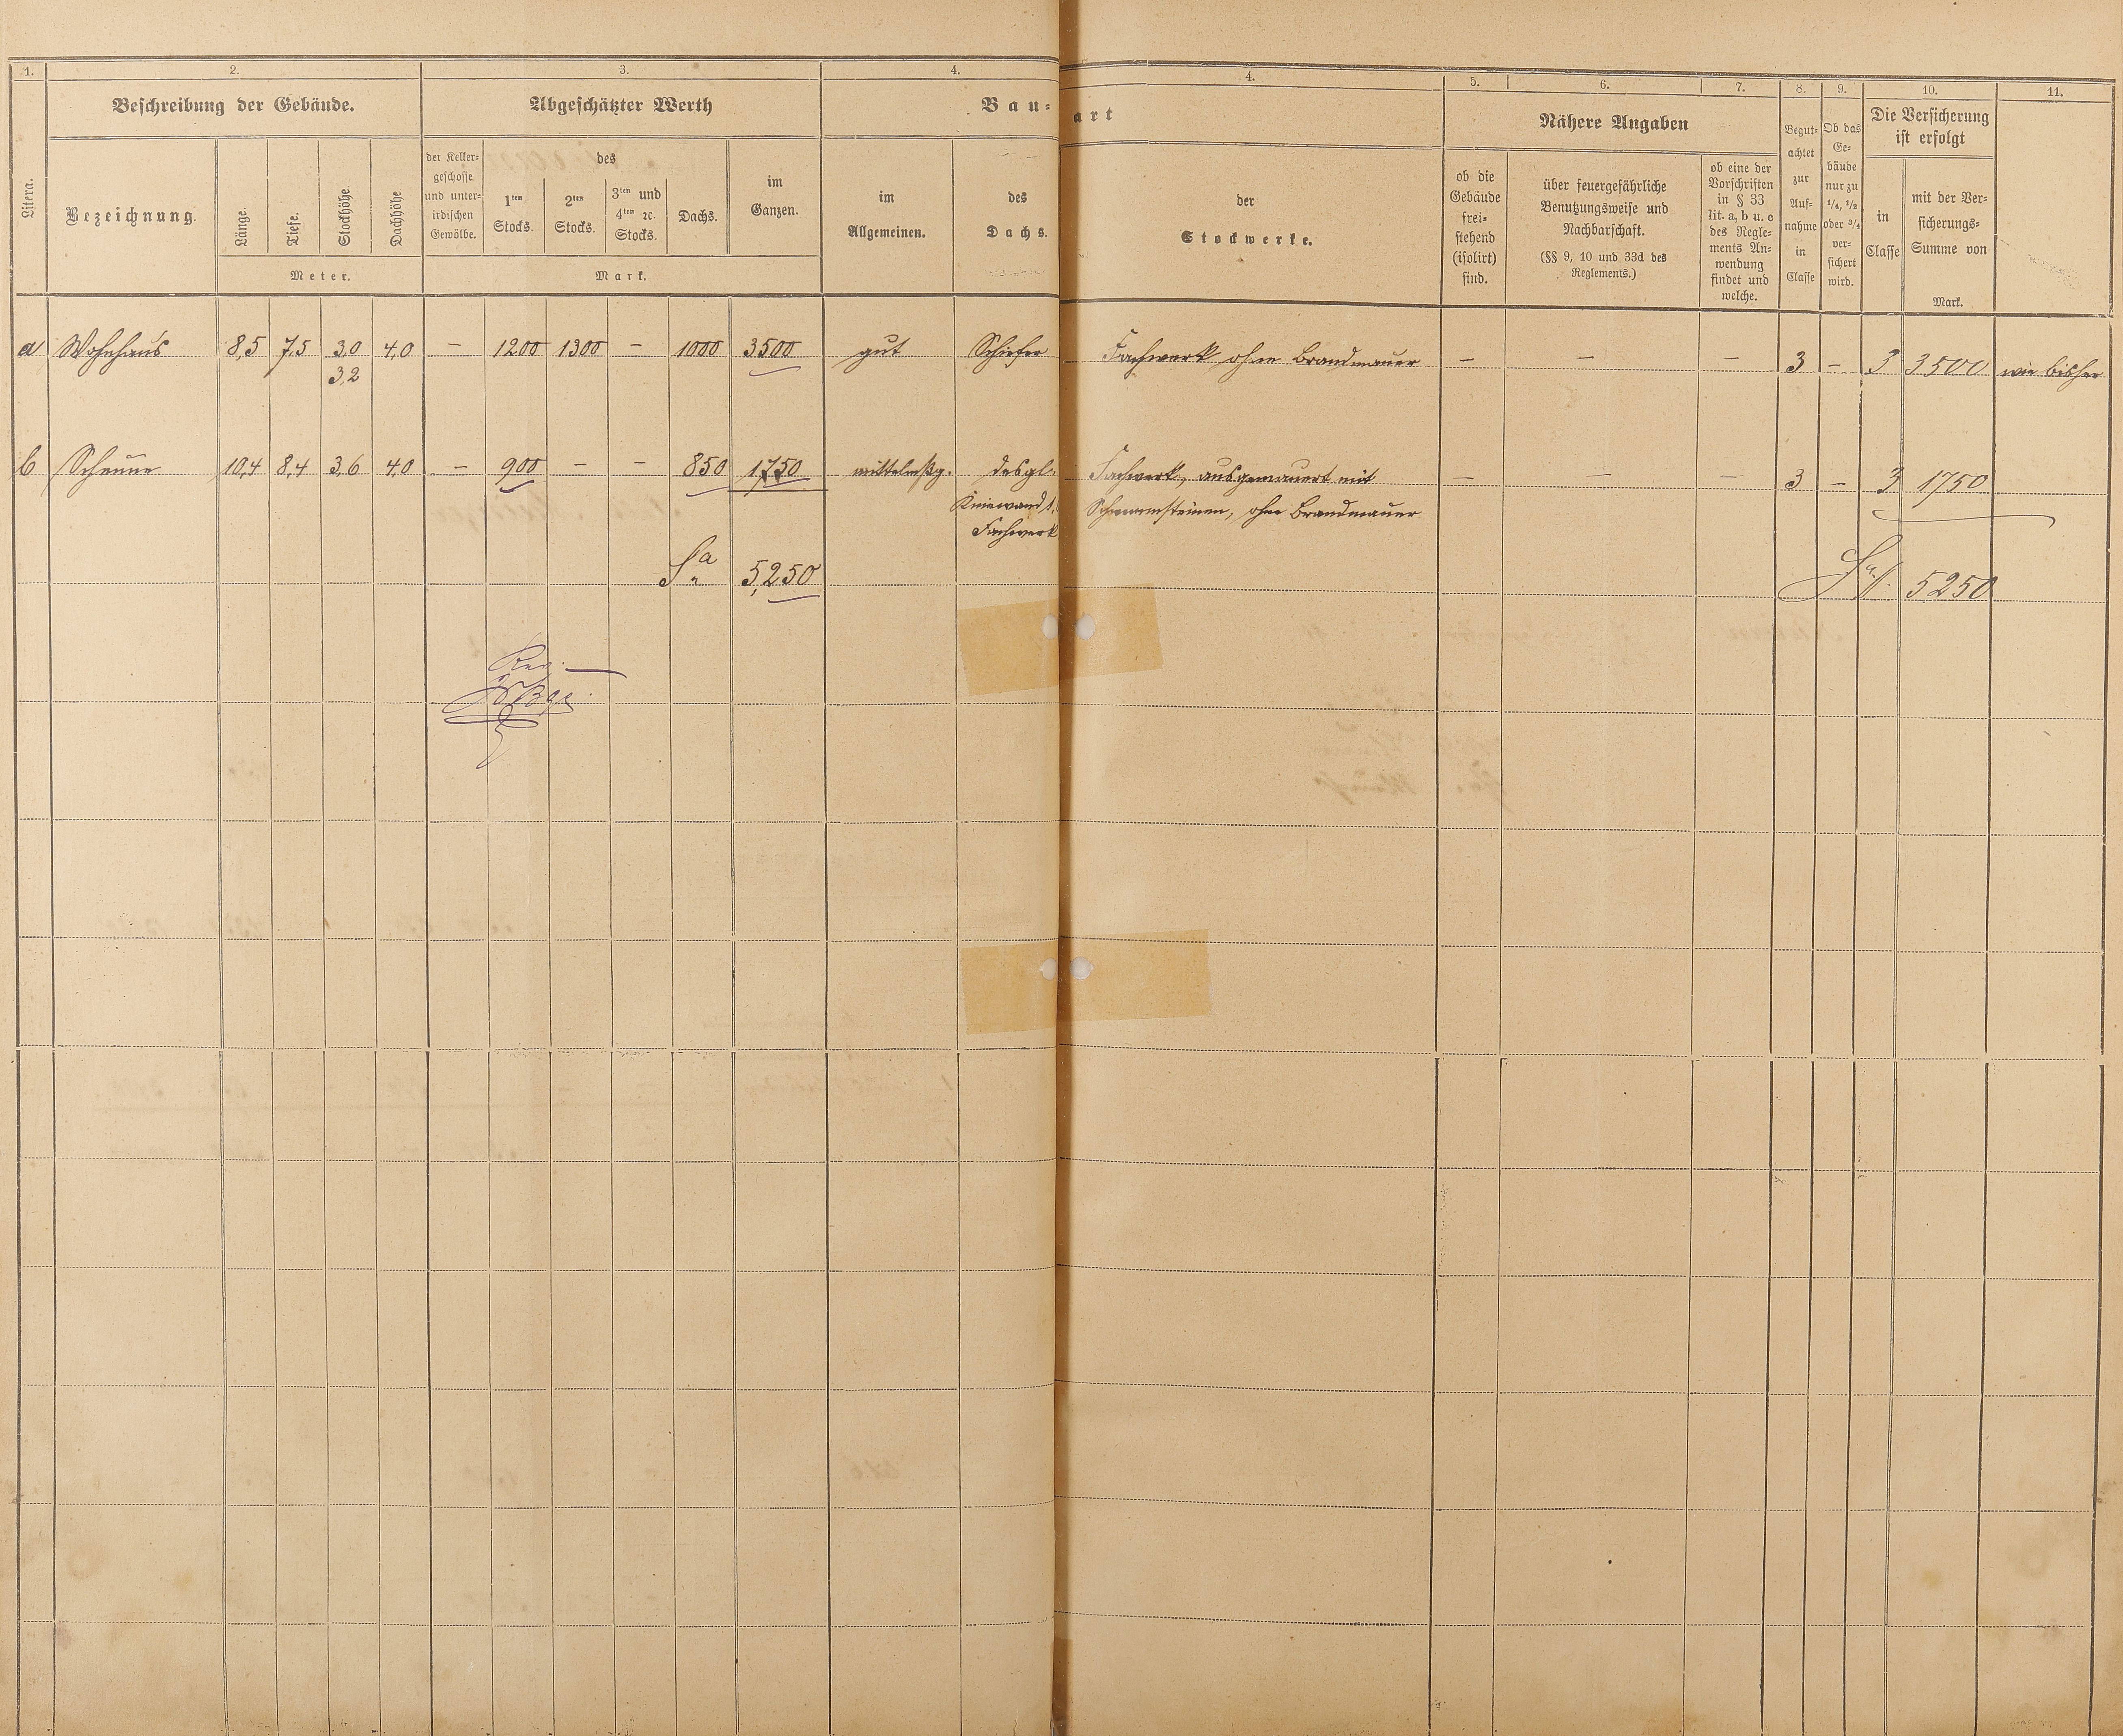 1. 2. 3. 4. 4. 5. 6. 7. 8. 9. 10. 11.
Beschreibung der Gebäude.
Abgeschätzter Werth
Bau-
art
Nähere Angaben
Die Versicherung
ist erfolgt
Litera.
Bezeichnung.
Länge.
Tiefe.
Stockhöhe
Dachhöhe
Meter.
der Keller-
geschosse
und unter-
irdischen
Gewölbe.
des
1ten
Stocks.
2ten
Stocks.
3ten und
4ten ꝛc.
Stocks.
Dachs.
im
Ganzen.
Mark.
im
Allgemeinen.
des
Dachs.
der
Stockwerke.
ob die
Gebäude
frei-
stehend
(isolirt)
sind.
über feuergefährliche
Benutzungsweise und
Nachbarschaft.
(§§ 9, 10 und 33d des
Reglements.)
ob eine der
Vorschriften
in § 33
lit. a, b u. c
des Regle-
ments An-
wendung
findet und
welche.
Begut-
achtet
zur
Auf-
nahme
in
Classe
Ob das
Ge-
bäude
nur zu
1/4, 1/2
oder 3/4
ver-
sichert
wird.
in
Classe
mit der Ver-
sicherungs-
Summe von
Mark.
a Wohnhaus 8,5 7,5 3,0 4,0 — 1200 1300 — 1000 3500 gut Schiefer Fachwerk ohne Brandmauer — — — 3 — 3 3500 wie bisher
3,2
b Scheune 10,4 8,4 3,6 4,0 — 900 — — 850 1750 mittelmßg. desgl. Fachwerk, ausgemauert mit — — — 3 — 3 1750
Kniewand 1, Schwemmsteinen, ohne Brandmauer
Fachwerk
Sa 5,250
Sa. 5250
Rev.